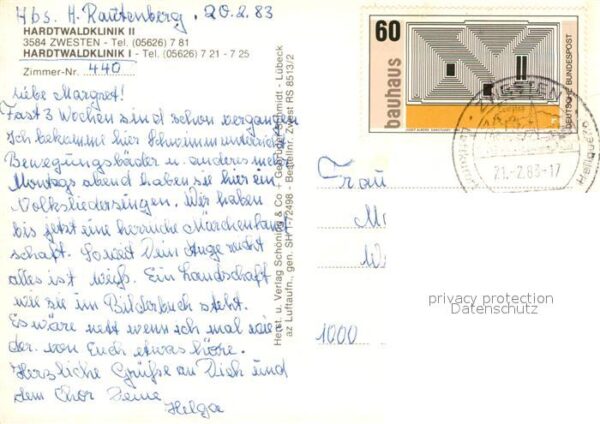 Abs. H. Rautenberg, 20.2.83
HARDTWALDKLINIK II
3584 ZWESTEN - Tel. (05626) 7 81
HARDTWALDKLINIK I - Tel. (05626) 7 21 - 7 25
Zimmer-Nr. 440
Liebe Margret!
Fast 3 Wochen sind schon vergangen
Ich bekomme hier Schwimmunterricht
Bewegungsbäder u. anderes mehr
Montags abend haben sie hier ein
Volksliedersingen. Wir haben
bis jetzt eine herrliche Märchenland
schaft. So weit Dein Auge reicht
alles ist weiß. Ein Landschaft
wie sie im Bilderbuch steht.
Es wäre nett wenn ich mal wie
der von Euch etwas höre.
Herzliche Grüße an Dich und
dem Chor Deine
Helga
Herst. u. Verlag Schöning & Co + Gebrüder Schmidt - Lübeck
az Luftaufn., gen. SH 1-72498 - Bestellnr. Zwest RS 8513/2
60
bauhaus
DEUTSCHE BUNDESPOST
ZWESTEN
21.-2.83-17
Heilquelle
Frau
1000
privacy protection
Datenschutz